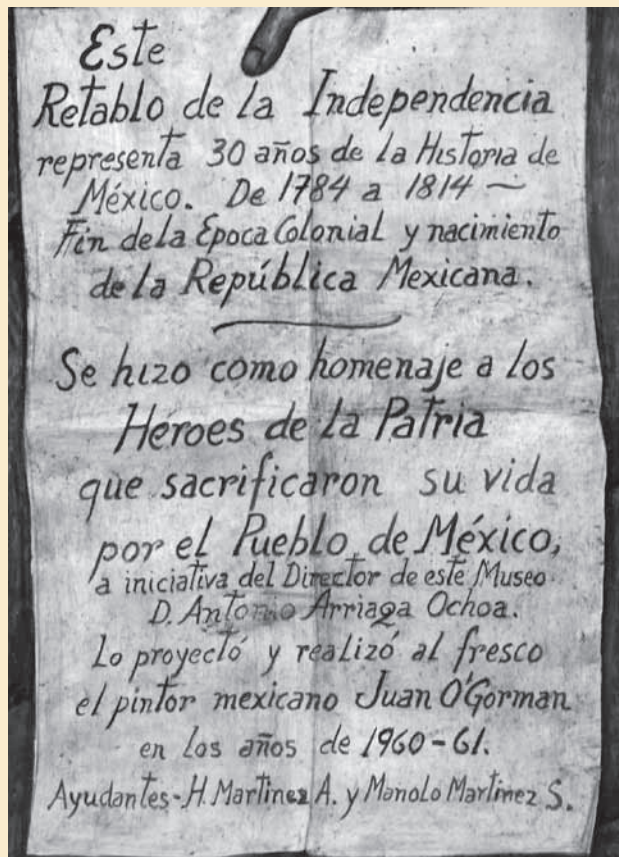 Este
Retablo de la Independencia
representa 30 años de la Historia de
México. De 1784 a 1814 —
Fin de la Epoca Colonial y nacimiento
de la República Mexicana.
Se hizo como homenaje a los
Heroes de la Patria
que sacrificaron su vida
por el Pueblo de México,
a iniciativa del Director de este Museo
D. Antonio Arriaga Ochoa.
Lo proyectó y realizó al fresco
el pintor mexicano Juan O'Gorman
en los años de 1960-61.
Ayudantes-H. Martinez A. y Manolo Martinez S.